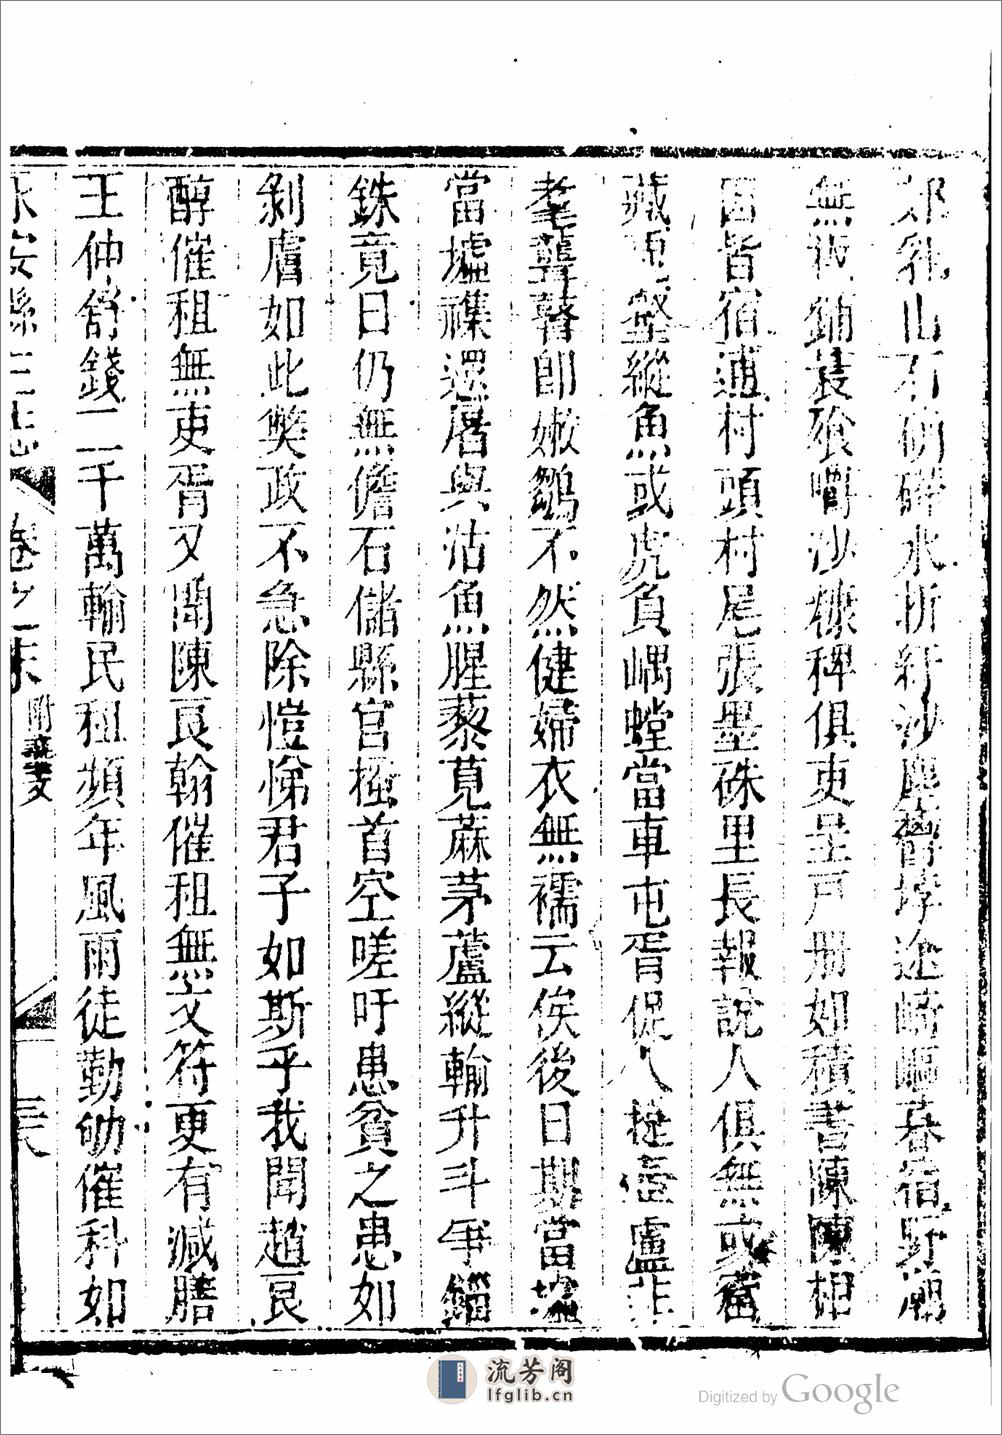 郊乳山石硝磷水折紆沙塵窅埻途崎嶇暮宿野廟
無被鋪蓑飱嚼沙糠稗俱吏呈戸册如積書陳陳相
因皆宿逋村頭村尾張墨硃里長報說人俱無或竄
藏兎壑縱魚或虎負嵎螳當車屯胥促人提壺盧非
耄聾瞽卽嫩鶵不然健婦衣無襦云俟後日期當壚
當墟襍遝屠與沽魚腥藜莧蔴茅蘆縱輸升斗爭錙
銖竟日仍無儋石儲縣官搔首空嗟吁患貧之患如
剝膚如此獘政不急除愷悌君子如斯乎我聞趙良
醇催租無吏胥又聞陳良翰催租無文符更有減膳
王仲舒錢二千萬輸民租頻年風雨徒勤劬催科如
永安縣三志 卷之末 附藝文
流芳阁
lfglib.cn
Digitized by Google